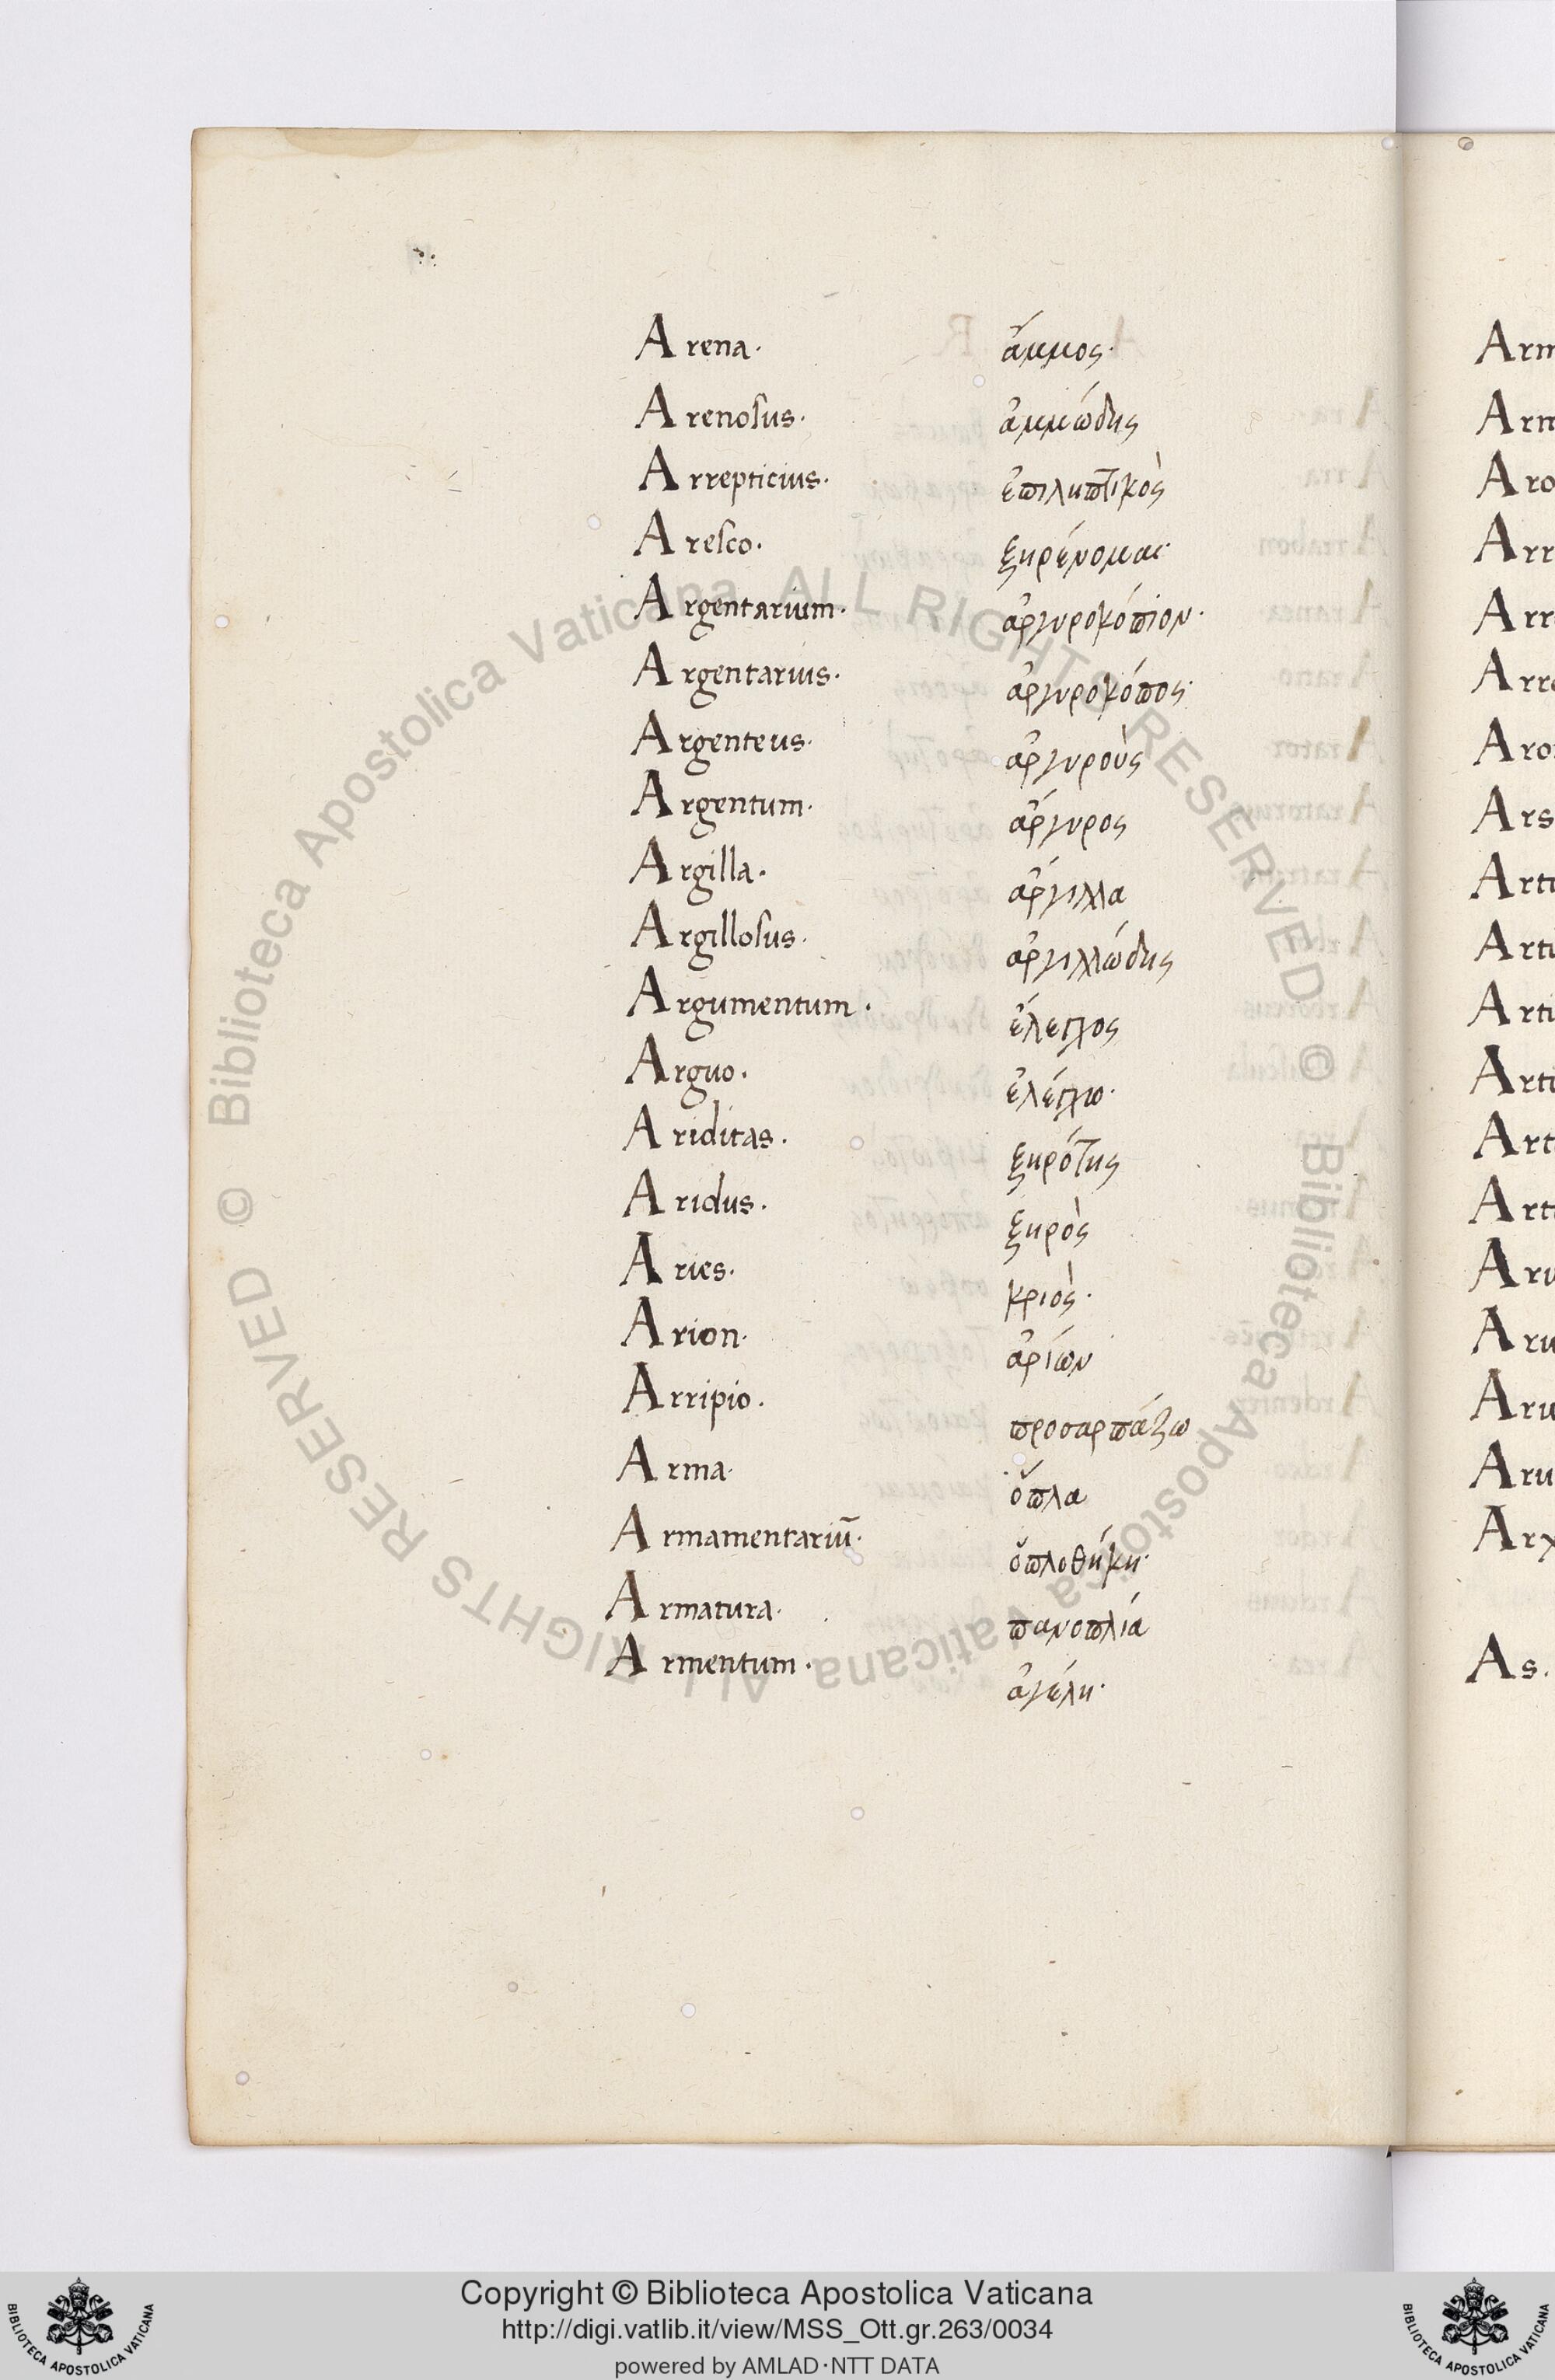 Arena. ἄμμος.
Arenosus. ἀμμώδης
Arrepticius. ἐπιληπτικὸς
Aresco. ξηρένομαι
Argentarium. ἀργυροκόπιον.
Argentarius. ἀργυροκόπος.
Argenteus. ἀργυροὺς
Argentum. ἄργυρος
Argilla. ἄργιλλα
Argillosus. ἀργιλλώδης
Argumentum. ἔλεγχος
Arguo. ἐλέγχω.
Ariditas. ξηρότης
Aridus. ξηρὸς
Aries. κριὸς.
Arion. ἀρίων
Arripio. προσαρπάζω
Arma. ὅπλα
Armamentariū. ὁπλοθήκη.
Armatura. πανοπλία
Armentum. ἀγέλη.
Arm
Arm
Aro
Arr
Arr
Arre
Aro
Ars
Arti
Arti
Arti
Arti
Art
Art
Aru
Aru
Aru
Aru
Arx
As.
© Biblioteca Apostolica Vaticana ALL RIGHTS RESERVED © Biblioteca Apostolica Vaticana ALL RIGHTS RESERVED
Copyright © Biblioteca Apostolica Vaticana
http://digi.vatlib.it/view/MSS_Ott.gr.263/0034
powered by AMLAD·NTT DATA
BIBLIOTECA APOSTOLICA VATICANA
BIBLIOTECA APOSTOLICA VATICANA